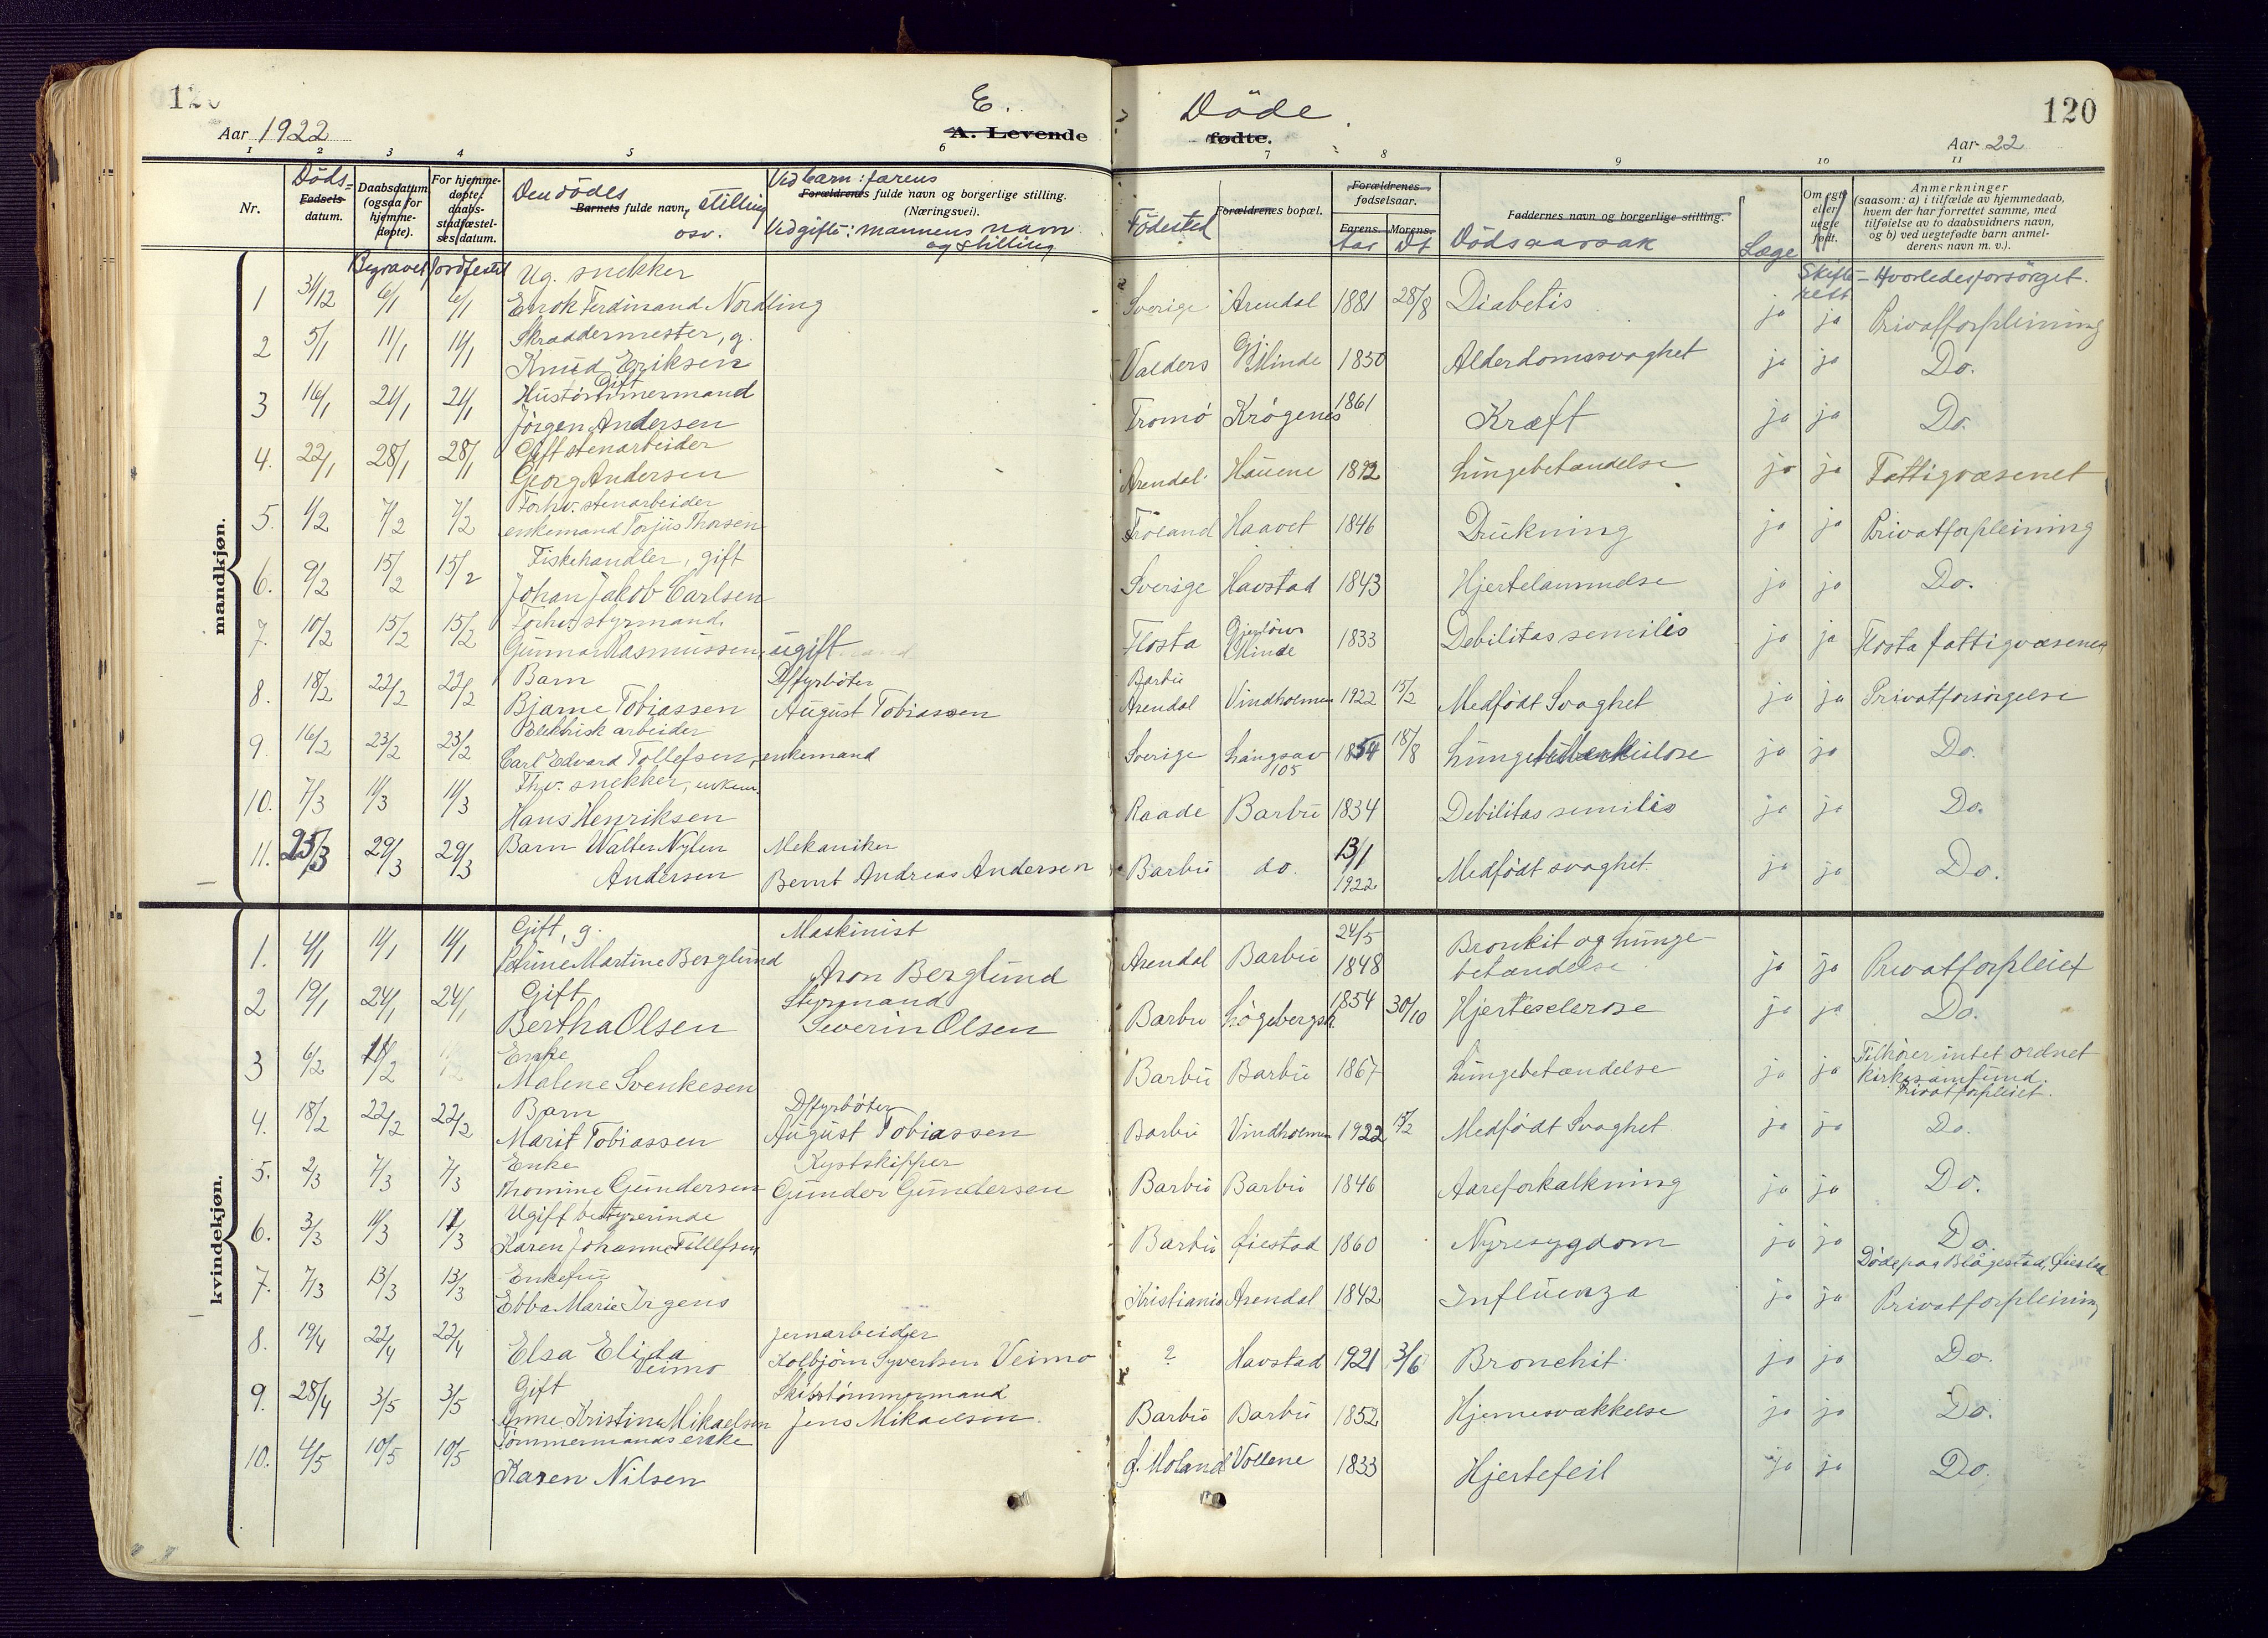 120
Aar 1922
E.
A. Levende
1 2 3 4 5 6
Nr.
Döds=
Fødsels-
datum.
Daabsdatum
(ogsaa for
hjemme-
døpte).
For hjemme-
døpte:
daabs-
stadfæstel-
ses datum.
Den dödes
Barnets fulde navn, stilling
osv.
Ved barn: farens
Forældrenes fulde navn og borgerlige stilling.
(Næringsvei).
Ved gifte: mannens navn
og stilling
Begravet Jordfestet
mandkjøn.
Ug. snekker
1 31/12 6/1 6/1 Enok Ferdinand Nordling
Skraddermester, g.
2 5/1 11/1 11/1 Knud Eriksen
Gift
Hustömmermand
3 16/1 21/1 21/1 Jörgen Andersen
Gift stenarbeider
4. 22/1 28/1 28/1 Georg Andersen
Forhv. stenarbeider
5. 1/2 7/2 7/2 enkemand Torjus Thorsen
Fiskehandler, gift
6. 9/2 15/2 15/2 Johan Jakob Carlsen
Forhv. styrmand.
7. 10/2 15/2 15/2 Gunnar Rasmussen, ugift
Barn Dsfyrböter
8. 18/2 22/2 22/2 Bjarne Tobiassen August Tobiassen
Elektrisk arbeider
9. 16/2 23/2 23/2 Carl Edvard Tollefsen, enkemand
Fhv. snekker, enkem.
10. 7/3 11/3 11/3 Hans Henriksen
11. 25/3 29/3 29/3 Barn Walter Nylen Mekaniker
Andersen Bernt Andreas Andersen
kvindekjøn.
Gift, g. Maskinist
1. 4/1 11/1 11/1 Petrine Martine Berglund Aron Berglund
Gift Styrmand
2 19/1 24/1 24/1 Bertha Olsen Severin Olsen
Enke
3 6/2 11/2 Malene Svenkesen
Barn Dsfyrböter
4. 18/2 22/2 22/2 Marit Tobiassen August Tobiassen
Enke Kystskipper
5. 2/3 7/3 7/3 Thomine Gundersen Gunder Gundersen
Ugift bestyrerinde
6. 3/3 11/3 11/3 Karen Johanne Tellefsen
Enkefru
7. 7/3 13/3 13/3 Ebba Marie Irgens
Jernarbeider
8. 19/4 22/4 22/4 Elsa Elida Kolbjörn Syvertsen Veimo
Veimo
Gift Skibstömmermand
9. 28/4 3/5 3/5 Anne Kristine Mikaelsen Jens Mikaelsen.
Tömmermands enke
10. 4/5 10/5 10/5 Karen Nilsen
Döde.
fødte.
120
Aar 22
7 8 9 10 11
Födested
Forældrenes bopæl.
Forældrenes
fødselsaar.
Farens. Morens.
Aar Dt
Faddernes navn og borgerlige stilling.
Dödsaarsak
Læge
Om egte
eller
uegte
født.
Anmerkninger
(saasom: a) i tilfælde av hjemmedaab,
hvem der har forrettet samme, med
tilføielse av to daabsvidners navn,
og b) ved uegtefødte barn anmel-
derens navn m. v.).
Skifte-
rett
Hvorledes forsörget.
Sverige Arendal 1881 28/8 Diabetis ja ja Privatforpleining
Valders Gj. Minde 1850 Alderdomssvaghet ja ja Do.
Tromö Krögenes 1861 Kræft ja ja Do.
Arendal Hauene 1892 Lungebetændelse ja ja Fattigvæsenet
Fröland Haavet 1846 Drukning ja ja Privatforpleining
Sverige Havstad 1843 Hjertelammelse ja ja Do.
Flosta Gjerlöws Minde 1833 Debilitas semilis ja ja Flosta fattigvæsenet
Barbu
Arendal Vindholmen 1922 15/2 Medfödt Svaghet ja ja Privatforsörgelse
Sverige Langsæv 105 1854 18/8 ja ja Do.
Raade Barbu 1834 Debilitas semilis ja ja Do.
Barbu do. 13/1 1922 Medfödt svaghet. ja ja Do.
Arendal Barbu 24/5 1848 Bronkit og lunge-
betændelse ja ja Privatforpleiet
Barbu Lögebergsk. 1854 30/10 Hjertesclerose ja ja Do.
Barbu Barbu 1867 Lungebetændelse ja ja Tilhörer intet ordnet
kirkesamfund.
Privatforpleiet.
Barbu Vindholmen 1922 15/2 Medfödt Svaghet ja ja Do.
Barbu Barbu 1846 Aareforkalkning ja ja Do.
Barbu Öiestad 1860 Nyresygdom ja ja Do.
Döde paa Blågestad, Öiestad
Kristiania Arendal 1842 Influenza ja ja Privatforpleining
? Havstad 1921 3/6 Bronchit ja ja Do.
Barbu Barbu 1852 Hjernesvækkelse ja ja Do.
Ö. Moland Vollene 1833 Hjertefeil ja ja Do.